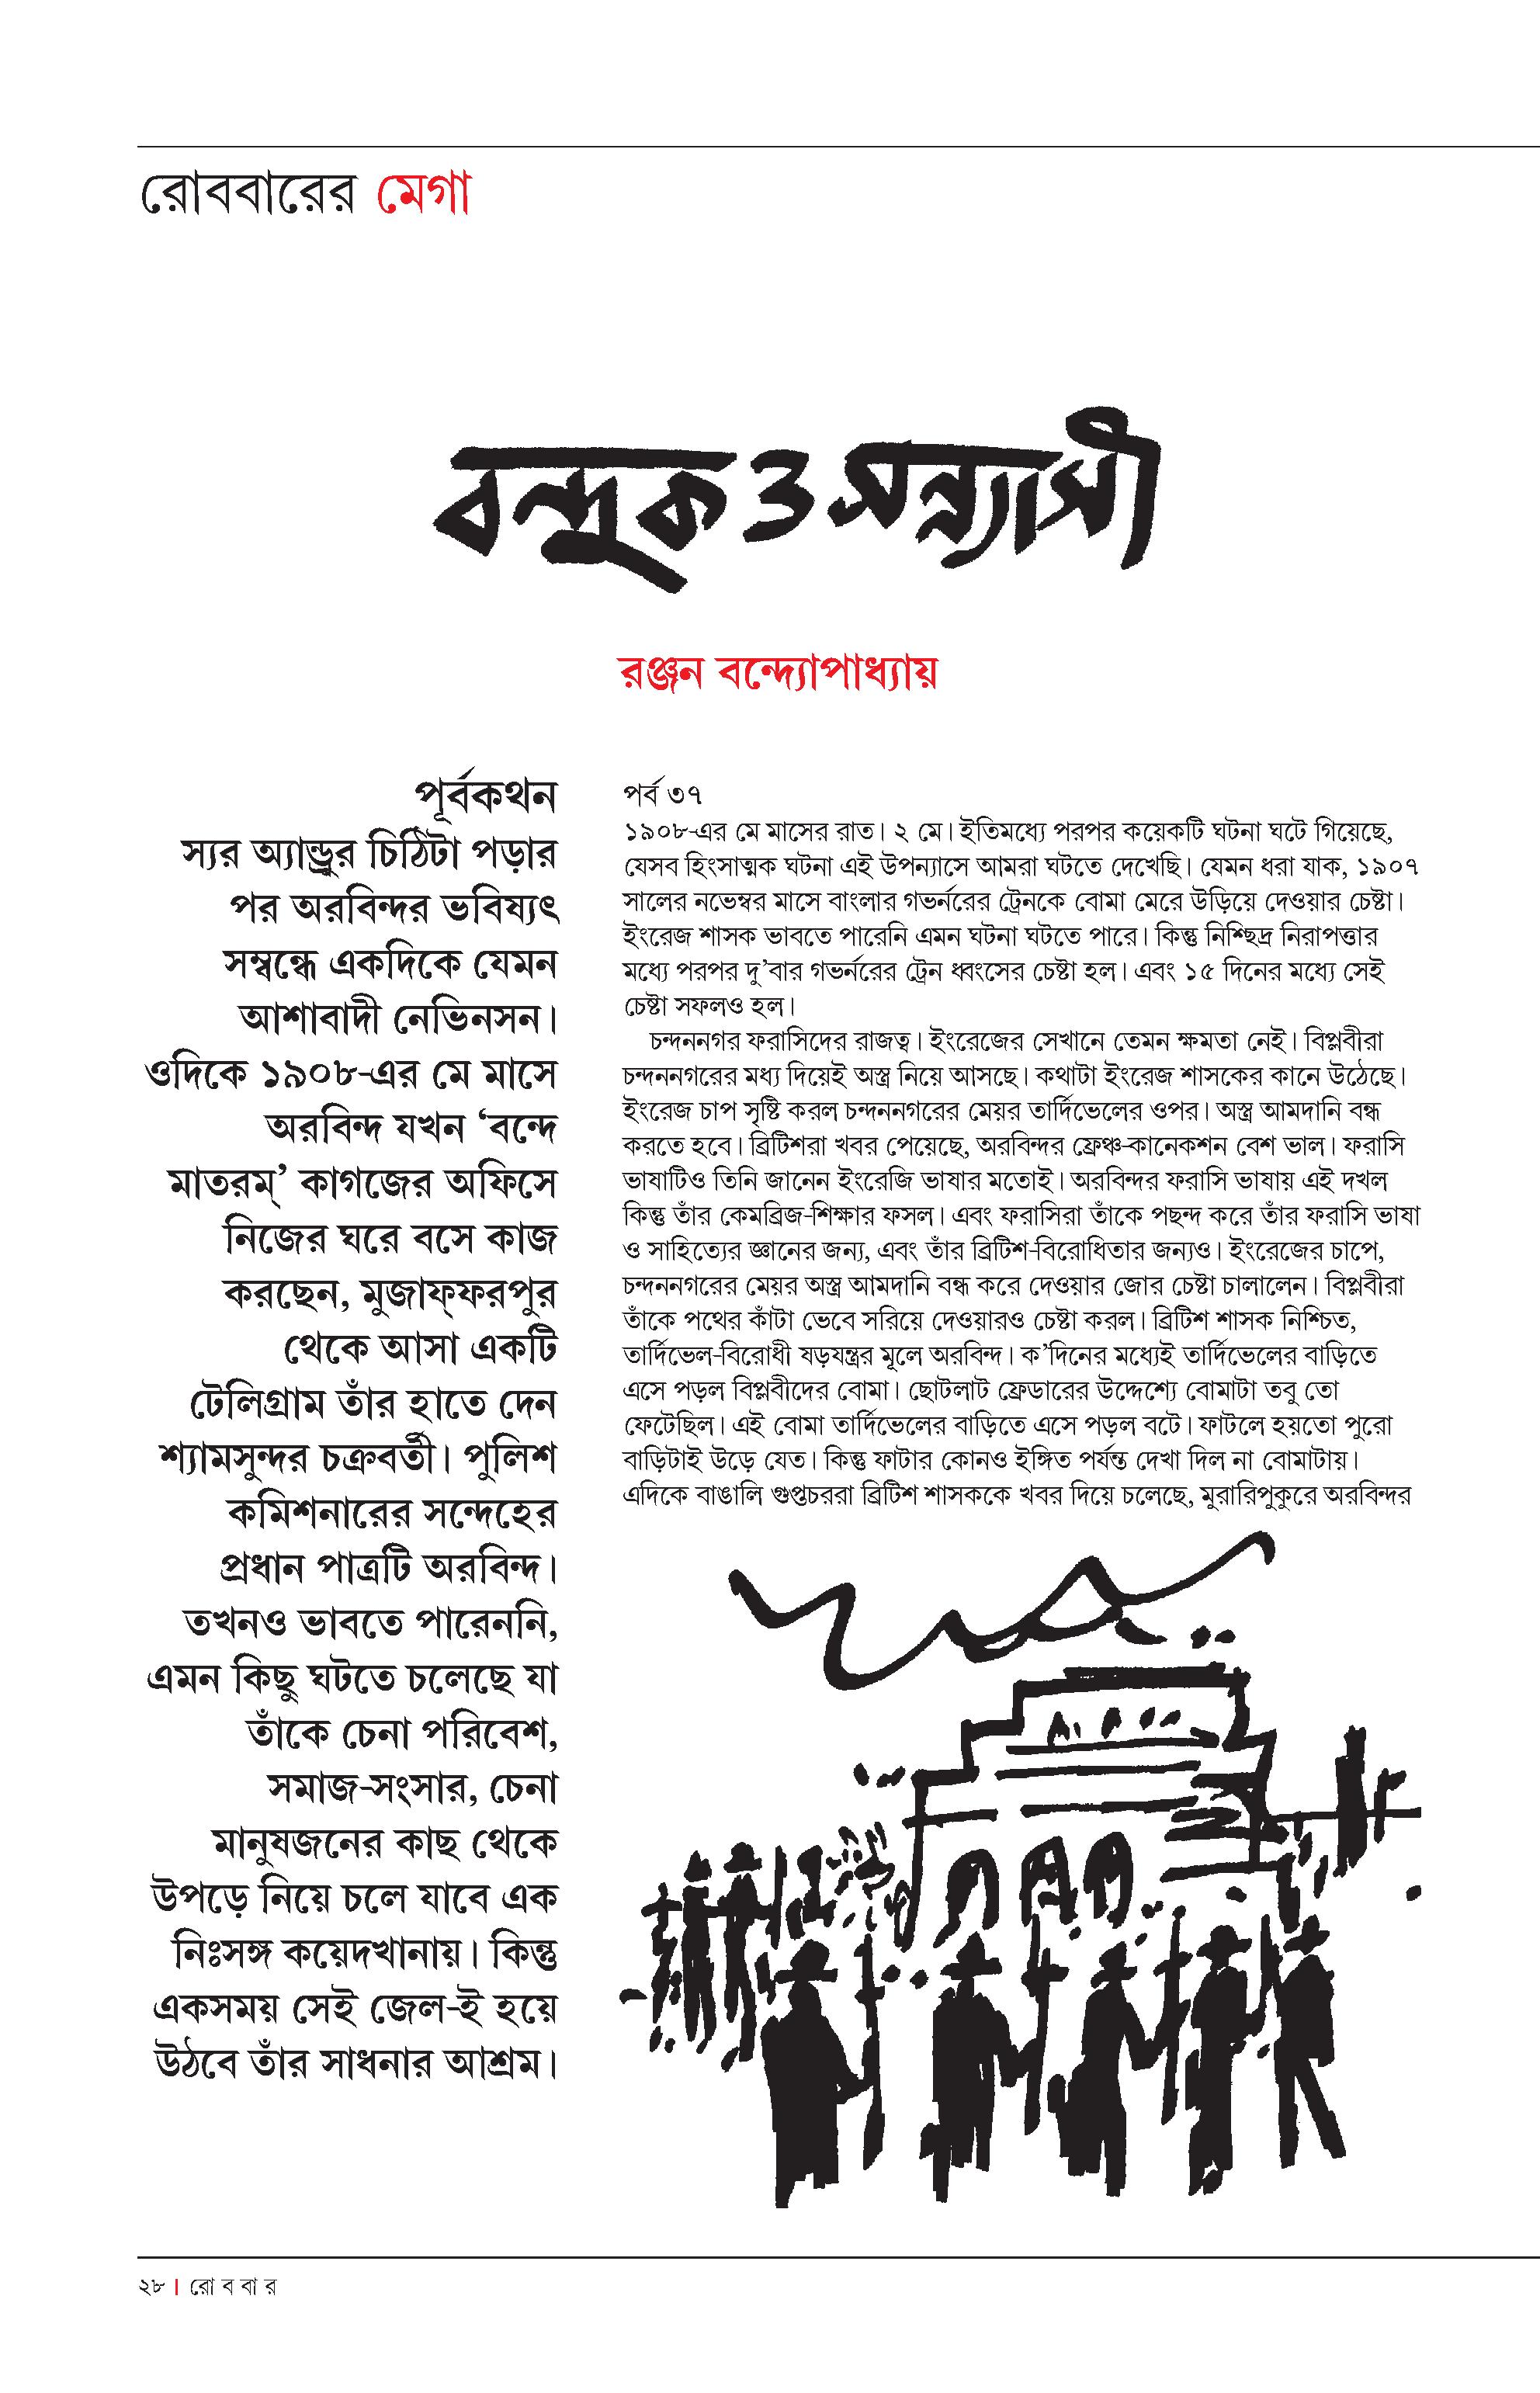 রোববারের মেগা
বন্দুক ও সন্ন্যাসী
রঞ্জন বন্দ্যোপাধ্যায়
পূর্বকথন
স্যর অ্যান্ড্রুর চিঠিটা পড়ার
পর অরবিন্দর ভবিষ্যৎ
সম্বন্ধে একদিকে যেমন
আশাবাদী নেভিনসন।
ওদিকে ১৯০৮-এর মে মাসে
অরবিন্দ যখন ‘বন্দে
মাতরম্’ কাগজের অফিসে
নিজের ঘরে বসে কাজ
করছেন, মুজাফ্‌ফরপুর
থেকে আসা একটি
টেলিগ্রাম তাঁর হাতে দেন
শ্যামসুন্দর চক্রবর্তী। পুলিশ
কমিশনারের সন্দেহের
প্রধান পাত্রটি অরবিন্দ।
তখনও ভাবতে পারেননি,
এমন কিছু ঘটতে চলেছে যা
তাঁকে চেনা পরিবেশ,
সমাজ-সংসার, চেনা
মানুষজনের কাছ থেকে
উপড়ে নিয়ে চলে যাবে এক
নিঃসঙ্গ কয়েদখানায়। কিন্তু
একসময় সেই জেল-ই হয়ে
উঠবে তাঁর সাধনার আশ্রম।
পর্ব ৩৭
১৯০৮-এর মে মাসের রাত। ২ মে। ইতিমধ্যে পরপর কয়েকটি ঘটনা ঘটে গিয়েছে,
যেসব হিংসাত্মক ঘটনা এই উপন্যাসে আমরা ঘটতে দেখেছি। যেমন ধরা যাক, ১৯০৭
সালের নভেম্বর মাসে বাংলার গভর্নরের ট্রেনকে বোমা মেরে উড়িয়ে দেওয়ার চেষ্টা।
ইংরেজ শাসক ভাবতে পারেনি এমন ঘটনা ঘটতে পারে। কিন্তু নিশ্ছিদ্র নিরাপত্তার
মধ্যে পরপর দু’বার গভর্নরের ট্রেন ধ্বংসের চেষ্টা হল। এবং ১৫ দিনের মধ্যে সেই
চেষ্টা সফলও হল।
চন্দননগর ফরাসিদের রাজত্ব। ইংরেজের সেখানে তেমন ক্ষমতা নেই। বিপ্লবীরা
চন্দননগরের মধ্য দিয়েই অস্ত্র নিয়ে আসছে। কথাটা ইংরেজ শাসকের কানে উঠেছে।
ইংরেজ চাপ সৃষ্টি করল চন্দননগরের মেয়র তার্দিভেলের ওপর। অস্ত্র আমদানি বন্ধ
করতে হবে। ব্রিটিশরা খবর পেয়েছে, অরবিন্দর ফ্রেঞ্চ-কানেকশন বেশ ভাল। ফরাসি
ভাষাটিও তিনি জানেন ইংরেজি ভাষার মতোই। অরবিন্দর ফরাসি ভাষায় এই দখল
কিন্তু তাঁর কেমব্রিজ-শিক্ষার ফসল। এবং ফরাসিরা তাঁকে পছন্দ করে তাঁর ফরাসি ভাষা
ও সাহিত্যের জ্ঞানের জন্য, এবং তাঁর ব্রিটিশ-বিরোধিতার জন্যও। ইংরেজের চাপে,
চন্দননগরের মেয়র অস্ত্র আমদানি বন্ধ করে দেওয়ার জোর চেষ্টা চালালেন। বিপ্লবীরা
তাঁকে পথের কাঁটা ভেবে সরিয়ে দেওয়ারও চেষ্টা করল। ব্রিটিশ শাসক নিশ্চিত,
তার্দিভেল-বিরোধী ষড়যন্ত্রর মূলে অরবিন্দ। ক’দিনের মধ্যেই তার্দিভেলের বাড়িতে
এসে পড়ল বিপ্লবীদের বোমা। ছোটলাট ফ্রেডারের উদ্দেশ্যে বোমাটা তবু তো
ফেটেছিল। এই বোমা তার্দিভেলের বাড়িতে এসে পড়ল বটে। ফাটলে হয়তো পুরো
বাড়িটাই উড়ে যেত। কিন্তু ফাটার কোনও ইঙ্গিত পর্যন্ত দেখা দিল না বোমাটায়।
এদিকে বাঙালি গুপ্তচররা ব্রিটিশ শাসককে খবর দিয়ে চলেছে, মুরারিপুকুরে অরবিন্দর
২৮ । রো ব বা র